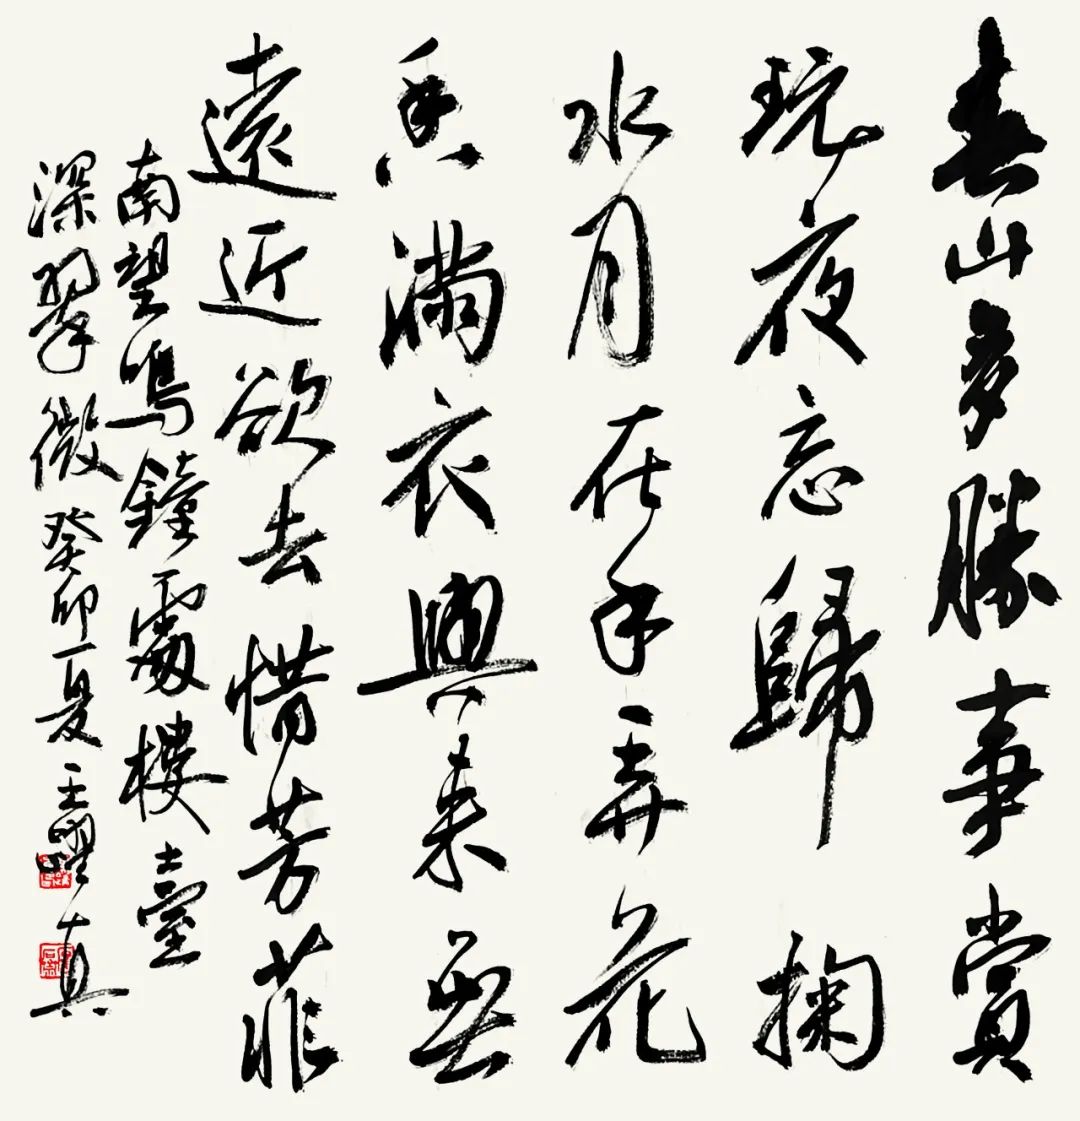 春山多勝事賞
玩夜忘歸掬
水月在手弄花
香滿衣興來無
遠近欲去惜芳菲
南望鳴鐘處樓臺
深翠微癸卯夏王曜真